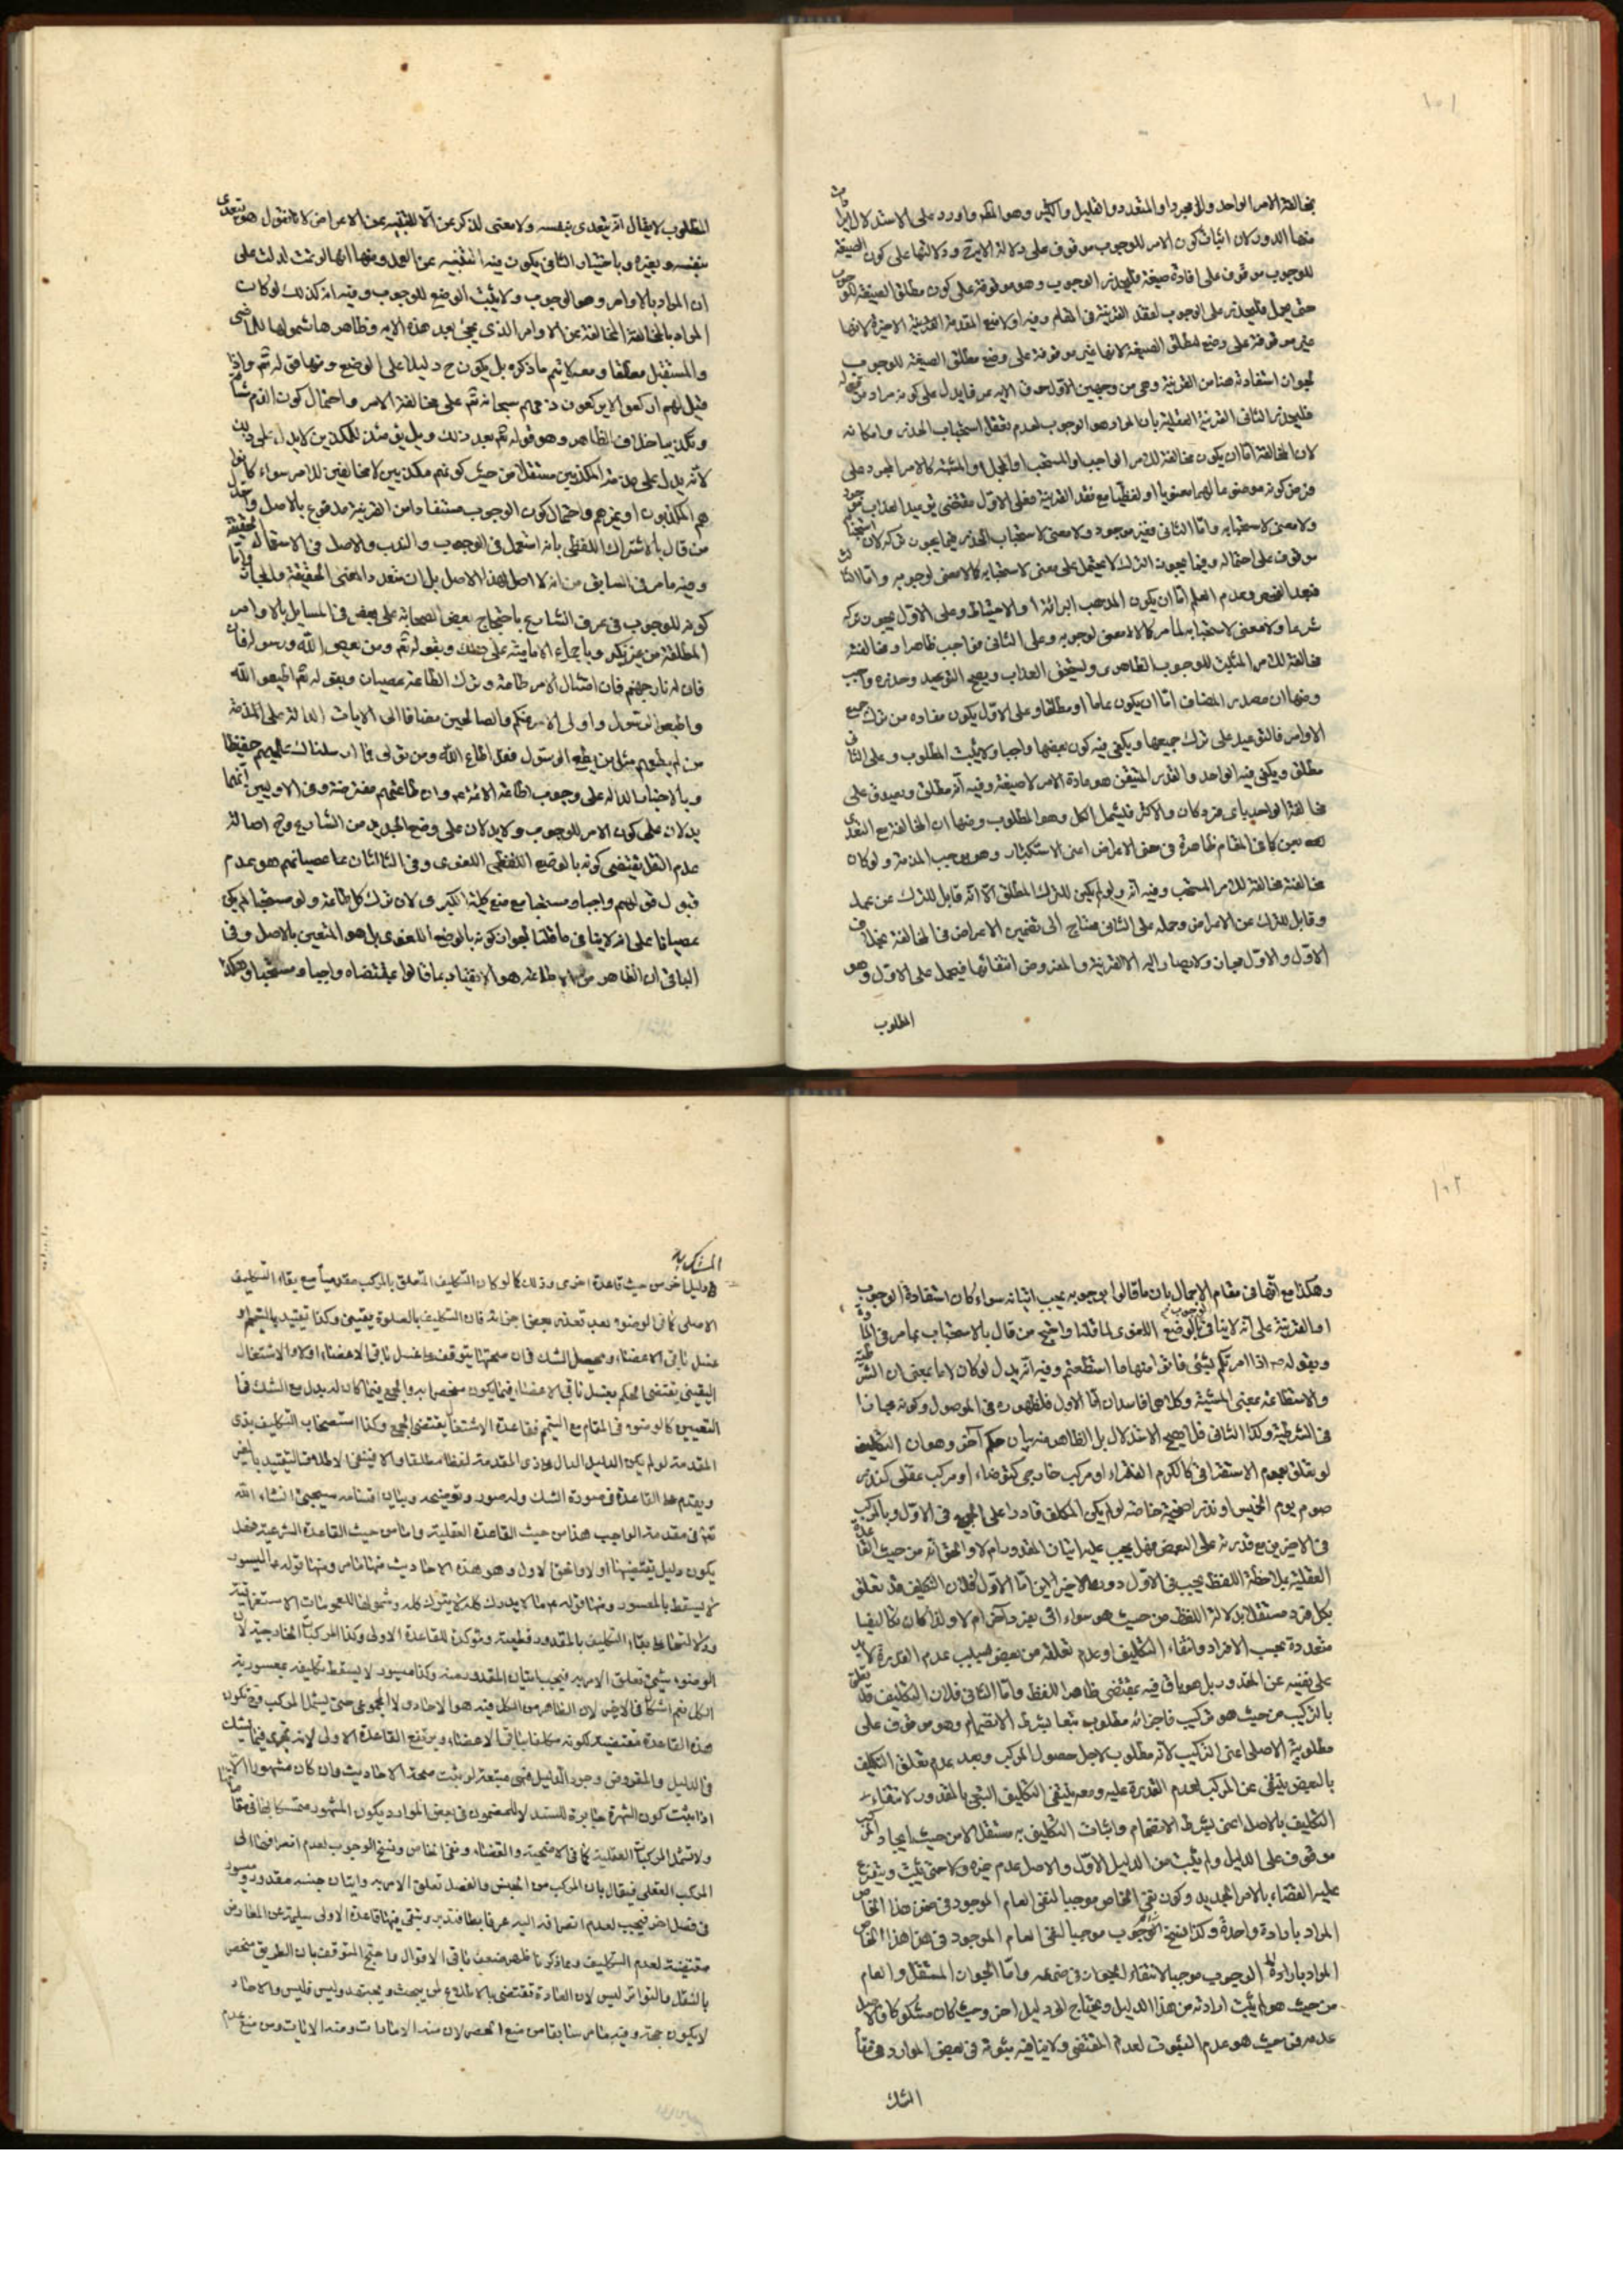 ١٠١
مخالفة الامر الواحد والمجرد او المتعدد والقليل والكثير وهو الحكم واورد على الاستدلال
منها الدور لان اثبات كون الامر للوجوب موقوف على دلالة الاية ودلالتها على كون الصيغة
للوجوب موقوف على افادة صيغة فليحذر الوجوب وهو موقوفة على كون مطلق الصيغة للوجوب
حتى يحمل فليحذر على الوجوب لفقد القرينة فى المقام وفيه اولا منع المقدمة القريبة الاخيرة لانها
غير موقوفة على وضع مطلق الصيغة لانها غير موقوفة على وضع مطلق الصيغة للوجوب
لجواز استفادته هنا من القرينة وهى من وجهين الاول خوف الاية عرفا يدل على كونه مراد من قوله
فليحذر الثانى القرينة العقلية بان المراد هو الوجوب لعدم تعقل استحباب الحذر وامكانه
لان المخالفة اما ان يكون مخالفة للامر الواجب والمستحب او المجمل والمشتبه كالامر المجرد على
ولا معنى لاستحبابه واما الثانى فغير موجود ولا معنى لاستحباب الحذر فيما يجوز تركه لان
موقوف على احتماله وفيما يجوز الترك لا يحتمل على معنى لاستحبابه كالامعنى لوجوبه واما
فبعد الفحص وعدم العلم اما ان يكون المذهب البرائة او الاحتياط وعلى الاول يجوز تركه
شرعا ولا معنى لاستحبابه لما مر كالامعنى لوجوبه وعلى الثانى فواجب ظاهرا ومخالفته
مخالفة للامر المثبت للوجوب الظاهرى ويستحق العذاب ويصح التوعيد وحذره واجب
ومنها ان مصدر المضاف اما ان يكون عاما او مطلقا وعلى الاول يكون مفاده من ترك جميع
الاوامر فالتوعيد على ترك جميعها ويكفى فيه كون بعضها واجبا ولا يثبت المطلوب وعلى
مطلق ويكفى فيه الواحد والقدر المتيقن هو مادة الامر لا صيغة وفيه انه مطلق ويصدق على
مخالفة الواحد باى فرد كان والاكثر فليشمل الكل وهو المطلوب ومنها ان المخالفة مع التعدى
بعن كما فى المقام ظاهرة فى حق الاعراض اعنى الاستكبار وهو يوجب المذمة ولو كان
مخالفته مخالفة للامر المستحب وفيه انه ولو لم يكن للترك المطلق الا انه قابل للترك عن عمد
وقابل للترك عن الاعراض وحمله على الثانى محتاج الى تضمين الاعراض فى المخالفة بخلاف
الاول والاول مجاز ولا يصار اليه الا لقرينة والمفروض انتفائها فيحمل على الاول وهو
المطلوب
المطلوب لا يقال انه يتعدى بنفسه ولا معنى لذكر عن الا للتنبيه عن الاعراض لانا نقول هو يتعدى
بنفسه وبغيره وباختيار الثانى يكون فيه التنبيه عن العمد ومنها انها لو تمت لدلت على
ان المراد بالاوامر وهو الوجوب ولا يثبت الوضع للوجوب وفيه انه كذلك لو كان
المراد بالمخالفة المخالفة عن الاوامر الذى يجئ بعد هذه الاية وظاهرها شمولها للماضى
والمستقبل مطلقا ومعه لا يتم ما ذكره بل يكون ح دليلا على الوضع ومنها قوله تم واذا
قيل لهم اركعوا لا يركعون ذمهم سبحانه تم على مخالفة الامر واحتمال كون الذم
وتكذيبا خلاف الظاهر وهو قوله تم بعد ذلك ويل يومئذ للمكذبين لا يدل على ذلك
لانه يدل على مذمة المكذبين مستقلا من حيث كونهم مكذبين لا مخالفين للامر سواء كانوا
هم المكذبون او غيرهم واحتمال كون الوجوب مستفادا من القرينة مدفوع بالاصل
من قال بالاشتراك اللفظى بانه استعمل فى الوجوب والندب والاصل فى الاستعمال الحقيقة
وفيه ما مر فى السابق من انه لا اصل لهذا الاصل بل ان تعدد المعنى الحقيقة والمجاز
كونه للوجوب فى عرف الشارع باحتجاج بعض الصحابة على بعض فى المسايل بالاوامر
المطلقة من غير نكير وباجماع الامامية على ذلك وبقوله تم ومن يعص الله ورسوله فان
فان له نار جهنم فان امتثال الامر طاعة وترك الطاعة عصيان وبقوله تم اطيعوا الله
واطيعوا الرسول واولى الامر منكم والصالحين مضافا الى الايات الدالة على المذمة
من لم يطعهم مثل من يطع الرسول فقد اطاع الله ومن تولى فما ارسلناك عليهم حفيظا
وبالاخبار الدالة على وجوب اطاعة الائمة عم وان طاعتهم مفترضة وفى الاوليين انهما
يدلان على كون الامر للوجوب ولا يدلان على وضع الجديد من الشارع وح اصالة
عدم النقل يقتضى كونه بالوضع اللفظى اللغوى وفى الثالث ان ما عصيانهم هو عدم
قبول قولهم واجبا ومستحبا مع منع كلية الكبرى لان ترك كل طاعة ولو مستحبا لم يكن
عصيانا على انه لا ينافى ما قلنا لجواز كونه بالوضع اللغوى بل هو المتعين بالاصل وفى
الباقى ان الظاهر من الاطاعة هو الانقياد بما قالوا بمقتضاه واجبا ومستحبا وهكذا
١٠٢
وهكذا مع انها فى مقام الاجمال بان ما قالوا بوجوبه يجب اتيانه سواء كان استفادة الوجوب
او القرينة على انه لا ينافى الوضع اللغوى لما قلنا واحتج من قال بالاستحباب بما مر فى
وبقوله ص اذا امرتكم بشئ فاتوا منها ما استطعتم وفيه انه يدل لو كان لا ما بمعنى ان الشرطية
والاستطاعة بمعنى المشية وكلاهما فاسدان اما الاول فلظهوره فى الموصول وكونه مجازا
فى الشرطية وكذا الثانى فلا يصح الاستدلال بل الظاهر منه بيان حكم آخر وهو ان التكليف
لو تعلق بعموم الاستغراقى كاكرم الفقراء او مركب خارجى كوضوء او مركب عقلى كنذر
صوم يوم الخميس او نذر اضحية خاصة لو لم يكن المكلف قادرا على الجميع فى الاول وبالمركب
فى الاخيرين مع قدرته على البعض فهل يجب عليه اتيان المقدور ام لا والحق انه من حيث القاعدة
العقلية بملاحظة اللفظ يجب فى الاول دون الاخيرين اما الاول فلان التكليف قد تعلق
بكل فرد مستقلا بدلالة اللفظ من حيث هو سواء اتى بفرد آخر ام لا ولذا كان تكاليفا
متعددة بحسب الافراد وانتفاء التكليف او عدم تعلقه من بعض بسبب عدم القدرة لا يدل
على نفيه عن المقدور بل هو باق فيه بمقتضى ظاهر اللفظ واما الثانى فلان التكليف قد تعلق
بالتركيب من حيث هو تركيب فاجزائه مطلوب تبعا بشرط الانضمام وهو موقوف على
مطلوبية الاصلى اعنى التركيب لانه مطلوب لاجل حصول المركب وبعد عدم تعلق التكليف
بالبعض ينتفى عن المركب لعدم القدرة عليه ومعه ينتفى التكليف التبعى بالمقدور لانتفاء
التكليف بالاصل اعنى بشرط الانضمام واثبات التكليف به مستقلا لا من حيث ايجاد المركب
موقوف على الدليل ولم يثبت من الدليل الاول والاصل عدم غيره ولا حتى يثبت ويتفرع
عليه القضاء بالامر الجديد وكون نفى الخاص موجبا لنفى العام الموجود فى ضمن هذا الخاص
المراد بارادة واحدة وكذا نسخ الوجوب موجبا لنفى العام الموجود فى ضمن هذا الخاص
المراد بارادة الوجوب موجبا لانتفاء الجواز فى ضمنه واما الجواز المستقل والعام
من حيث هو لم يثبت ارادته من هذا الدليل ويحتاج الى دليل اخر وحيث كان مشكوكا والاصل
عدمه فى حيث هو عدم الثبوت لعدم المقتضى ولا ينافيه ثبوته فى بعض الموارد
الشك
دليل اخر من حيث قاعدة اخرى وذلك كما لو كان التكليف المتعلق بالمركب مقدميا مع بقاء التكليف
الاصلى كما فى الوضوء بعد تعذر بعض اجزائه فان التكليف بالصلوة يقينى وكذا تقييد بالتيمم او
غسل باقى الاعضاء ويحصل الشك فان صحتها يتوقف على غسل باقى الاعضاء اولا والاشتغال
اليقينى يقتضى الحكم بغسل باقى الاعضاء فيما يكون منحصرا به والجمع فيما كان له بدل مع الشك فى
التعيين كالوضوء فى المقام مع التيمم فقاعدة الاشتغال يقتضى الجمع وكذا استصحاب التكليف بذى
المقدمة لو لم يكن الدليل الدال على ذى المقدمة لفظا مطلقا والا فينفى الاطلاق التقييد
تم فى مقدمة الواجب هذا من حيث القاعدة العقلية واما من حيث القاعدة الشرعية فهل
يكون دليل يقتضيها او لا والحق الاول وهو هذه الاحاديث منها ما مر ومنها قوله عم الميسور
لا يسقط بالمعسور ومنها قوله عم ما لا يدرك كله لا يترك كله وشمولها للعمومات الاستغراقية
ودلالتها على بقاء التكليف بالمقدور قطعية ومؤكدة للقاعدة الاولى وكذا المركبات الخارجية لان
الوضوء شئ تعلق الامر به فيجب اتيان المقدور منه وكذا ميسور لا يسقط تكليفه بمعسوريته
الكل نعم اشكال فى الاخير لان الظاهر من الكل فيه هو الاحادى لا المجموعى حتى يشمل المركب وح تكون
هذه القاعدة مقتضية لكونه مكلفا بباقى الاعضاء ويرتفع القاعدة الاولى لانه تجرى فيما يشك
فى الدليل والمفروض وجود الدليل فهى متبعة لو ثبت صحة الاحاديث وان كان مشهورا
اذا ثبت كون الشهرة جابرة للسند لا للمضمون فى بعض الموارد ويكون المشهور متمسكا بها فى
ولا تشمل المركبات العقلية كما فى الاضحية والقضاء ونفى الخاص ونسخ الوجوب لعدم انصرافها الى
المركب العقلى فيقال بان المركب من الجنس والفصل تعلق الامر به واتيان جنسه مقدور وميسور
فى فصل اخر فيجب لعدم انصرافه اليه عرفا فتدبر وبقى فيها قاعدة الاولى سليمة عن المعارض
مقتضية لعدم التكليف ومما ذكرنا ظهر ضعف باقى الاقوال واحتج المتوقف بان الطريق منحصر
بالنقل والتواتر ليس لان العادة تقتضى بالاطلاع لمن يبحث ويجتهد وليس فليس والاحاد
لا يكون حجة وفيه ما مر سابقا من منع الحصر